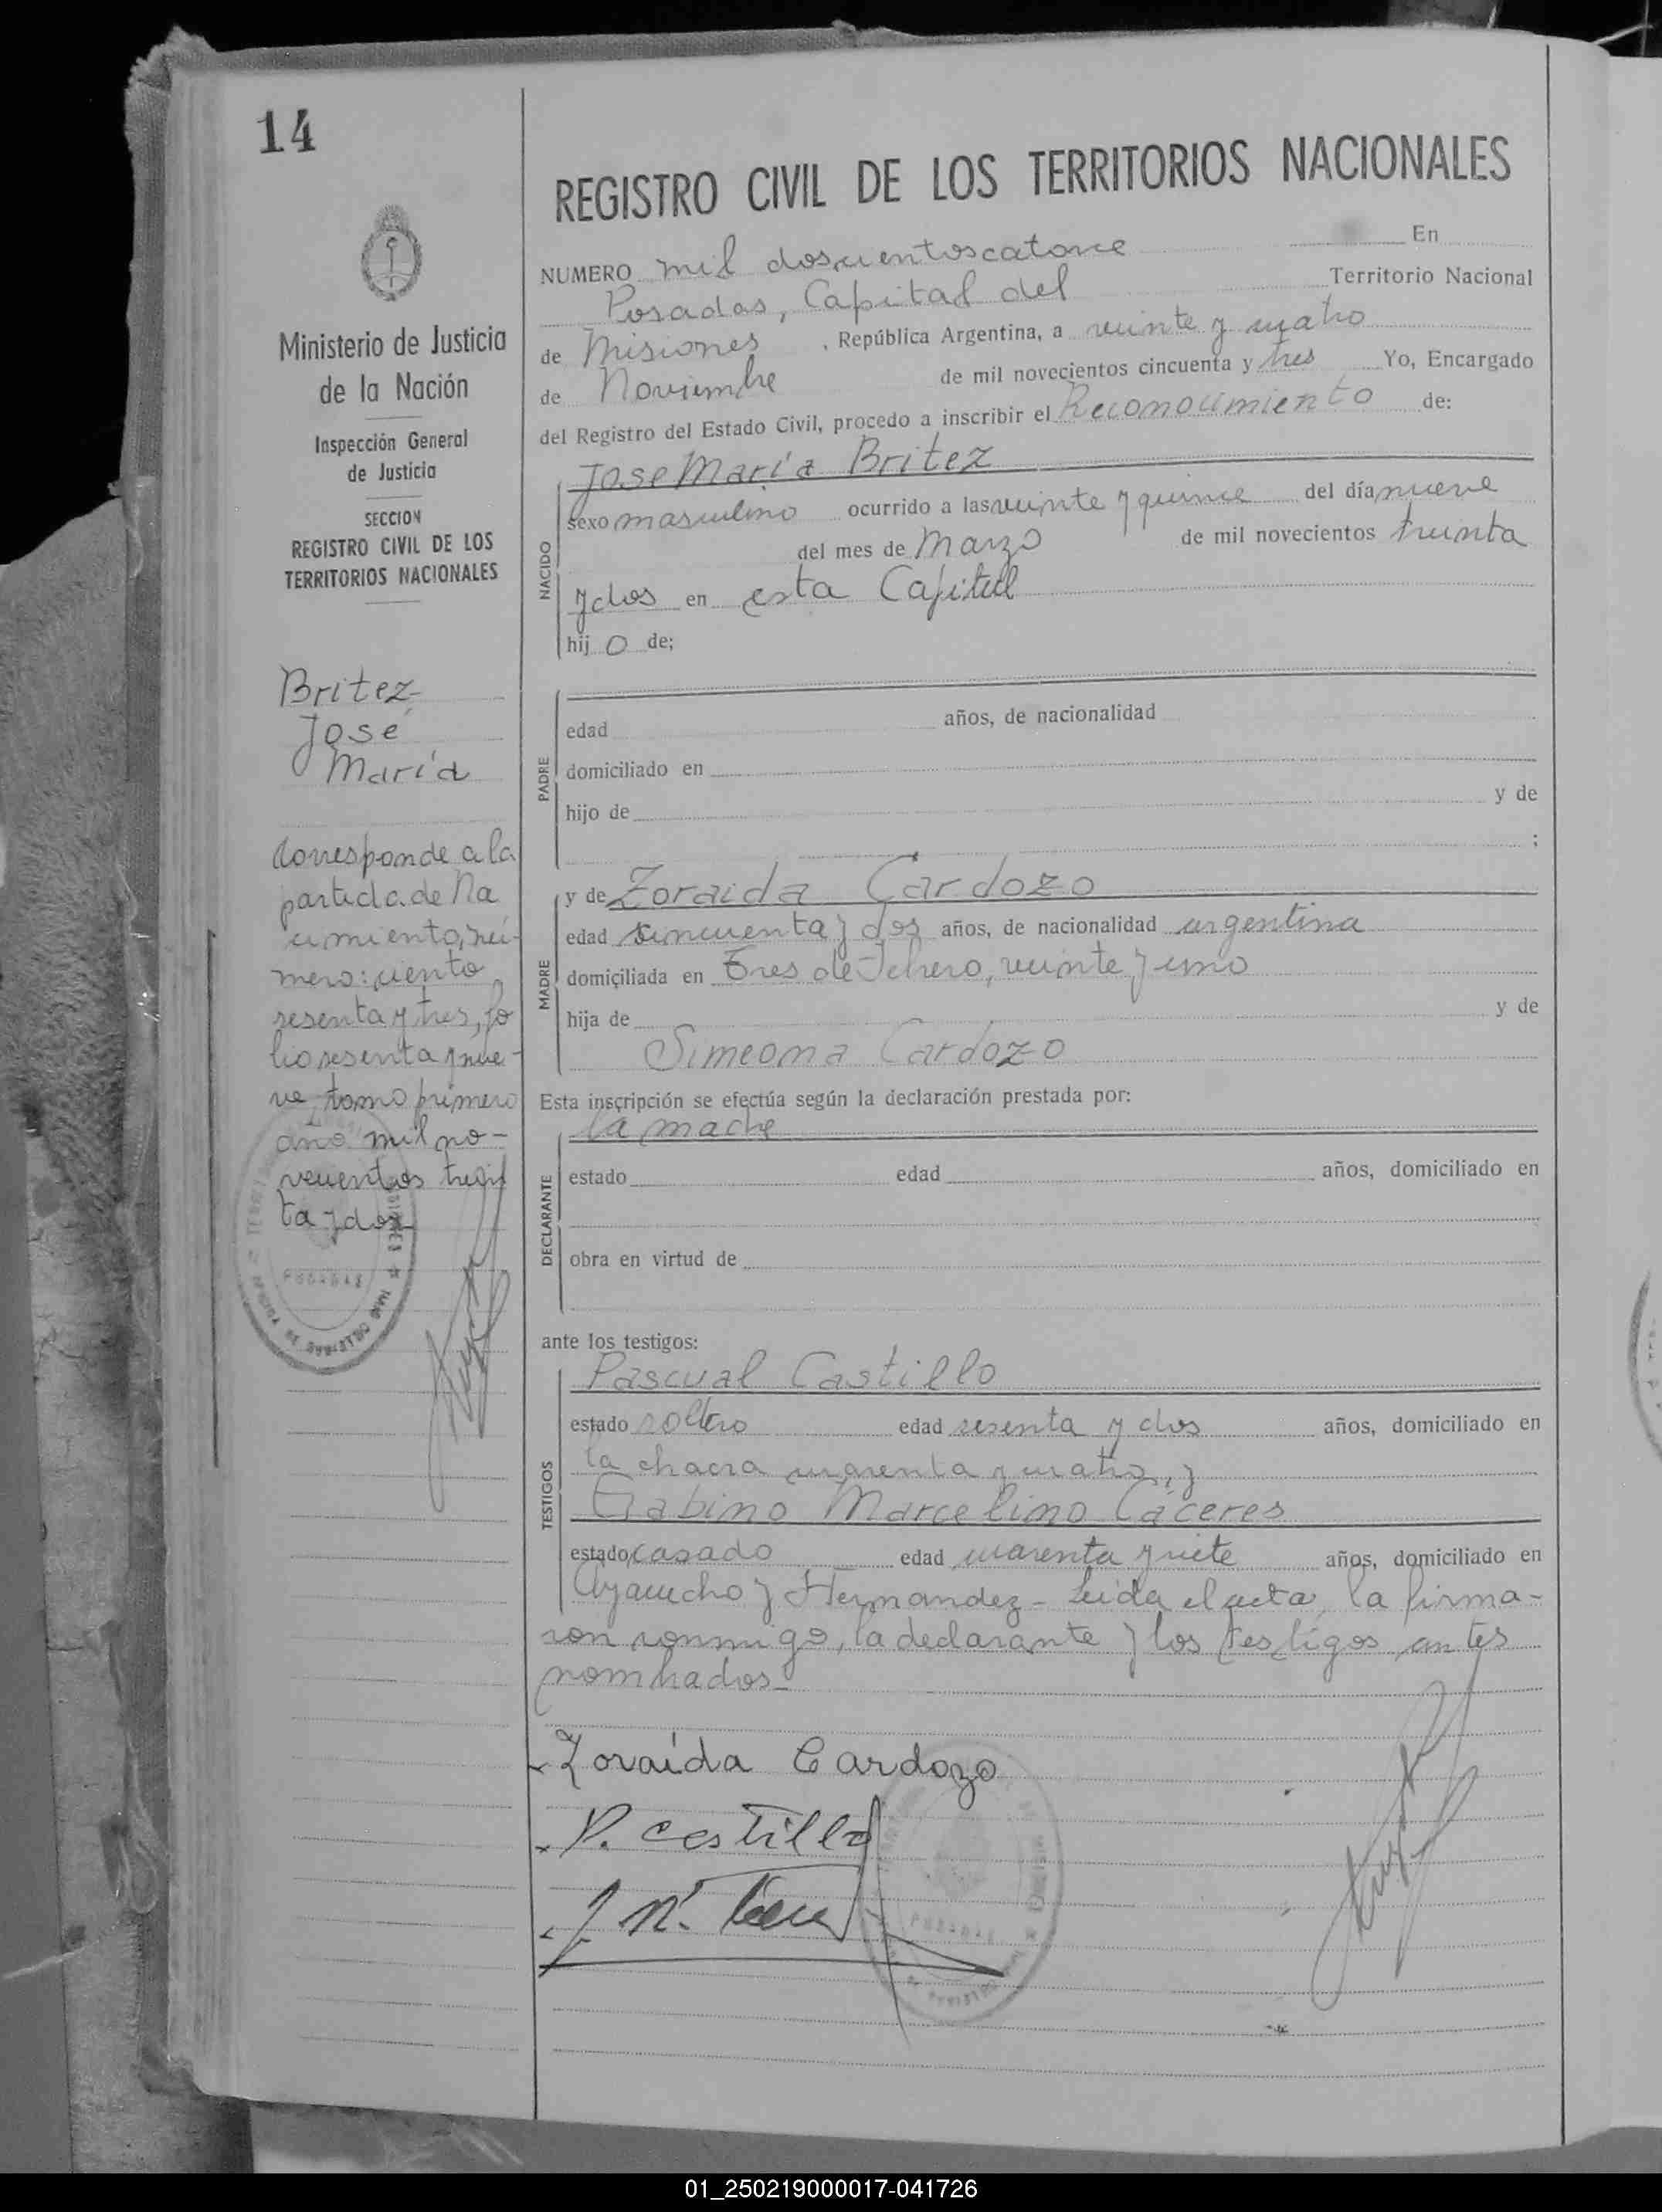 14
REGISTRO CIVIL DE LOS TERRITORIOS NACIONALES
NUMERO mil doscuentoscatorce En
Posadas, Capital del Territorio Nacional
de Misiones, República Argentina, a veinte y cuatro
de Noviembre de mil novecientos cincuenta y tres Yo, Encargado
del Registro del Estado Civil, procedo a inscribir el Reconocimiento de:
Jose María Britez
sexo masculino ocurrido a las veinte y quince del día nueve
del mes de Marzo de mil novecientos treinta
y dos en esta Capital
hij o de;
NACIDO
PADRE
edad años, de nacionalidad
domiciliado en
hijo de y de
;
MADRE
y de Zoraida Cardozo
edad cincuenta y dos años, de nacionalidad argentina
domiciliada en Tres de Febrero, veinte y uno
hija de y de
Simeona Cardozo
Esta inscripción se efectúa según la declaración prestada por:
la madre
DECLARANTE
estado edad años, domiciliado en
obra en virtud de
ante los testigos:
TESTIGOS
Pascual Castillo
estado soltero edad sesenta y dos años, domiciliado en
la chacra cuarenta y cuatro, y
Gabino Marcelino Cáceres
estado casado edad cuarenta y siete años, domiciliado en
Ayacucho y Hernandez - Leida el acta, la firma-
ron conmigo, la declarante y los testigos antes
nombrados-
Zoraida Cardozo
P. Castillo
Ministerio de Justicia
de la Nación
Inspección General
de Justicia
SECCION
REGISTRO CIVIL DE LOS
TERRITORIOS NACIONALES
Britez
José
María
Corresponde a la
partida de Na
cimiento, nú-
mero: ciento
sesenta y tres, fo
lio sesenta y nue-
ve, tomo primero
año mil no-
vecientos trein
ta y dos
POSADAS
POSADAS
01_250219000017-041726